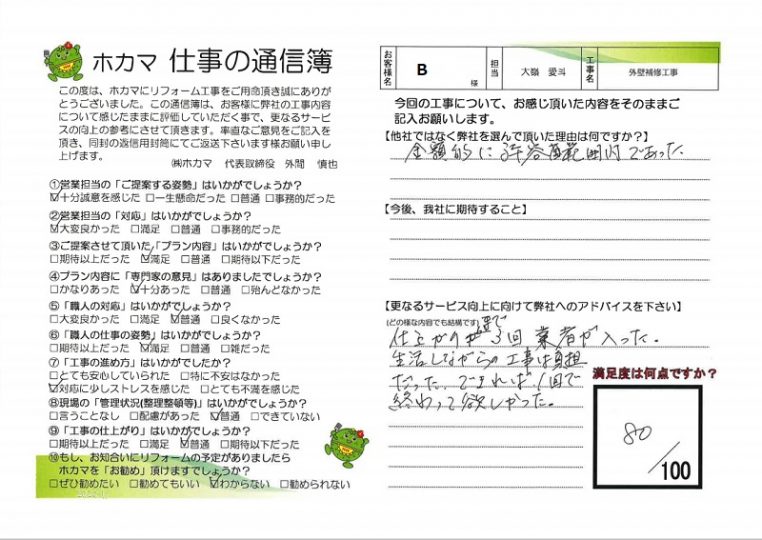 ホカマ 仕事の通信簿
この度は、ホカマにリフォーム工事をご用命頂き誠にありが
とうございました。この通信簿は、お客様に弊社の工事内容
について感じたままに評価していただく事で、更なるサービ
スの向上の参考にさせて頂きます。率直なご意見をご記入を
頂き、同封の返信用封筒にてご返送下さいます様お願い申し
上げます。
㈱ホカマ 代表取締役 外間 慎也
①営業担当の「ご提案する姿勢」はいかがでしょうか?
☑十分誠意を感じた □一生懸命だった □普通 □事務的だった
②営業担当の「対応」はいかがでしょうか?
☑大変良かった □満足 □普通 □事務的だった
③ご提案させて頂いた「プラン内容」はいかがでしょうか?
□期待以上だった ☑満足 □普通 □期待以下だった
④プラン内容に「専門家の意見」はありましたでしょうか?
□かなりあった ☑十分あった □普通 □殆んどなかった
⑤「職人の対応」はいかがでしょうか?
□大変良かった □満足 ☑普通 □良くなかった
⑥「職人の仕事の姿勢」はいかがでしょうか?
□期待以上だった ☑満足 □普通 □雑だった
⑦「工事の進め方」はいかがでしたか?
□とても安心していられた □特に不安はなかった
☑対応に少しストレスを感じた □とても不満を感じた
⑧現場の「管理状況(整理整頓等)」はいかがでしょうか?
□言うことなし □配慮があった ☑普通 □できていない
⑨「工事の仕上がり」はいかがでしょうか?
□期待以上だった □満足 ☑普通 □期待以下だった
⑩もし、お知合いにリフォームの予定がありましたら
ホカマを「お勧め」頂けますでしょうか?
□ぜひ勧めたい □勧めてもいい ☑わからない □勧められない
お客様名 B 様 担当 大嶺 愛斗 工事名 外壁補修工事
今回の工事について、お感じ頂いた内容をそのままご
記入お願いします。
【他社ではなく弊社を選んで頂いた理由は何ですか?】
金額的に許容範囲内であった
【今後、我社に期待すること】
【更なるサービス向上に向けて弊社へのアドバイスを下さい】
(どの様な内容でも結構です)
仕上がりが 3回 業者が入った。
生活しながらの工事は負担
だった。できれば1回で
終わって欲しかった。
満足度は何点ですか?
80
/100